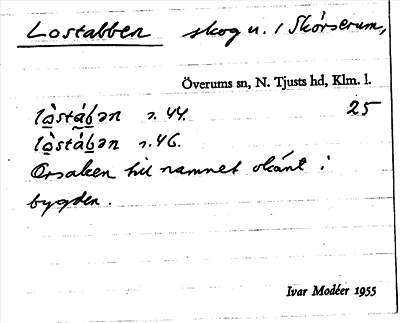 Lostabben skog u. / Skörserum,
Överums sn, N. Tjusts hd, Klm. l.
lo̱̊̀stáḇən s. 44. 25
lo̱̊̀stáḇən s. 46.
Orsaken till namnet okänt i
bygden.
Ivar Modéer 1955